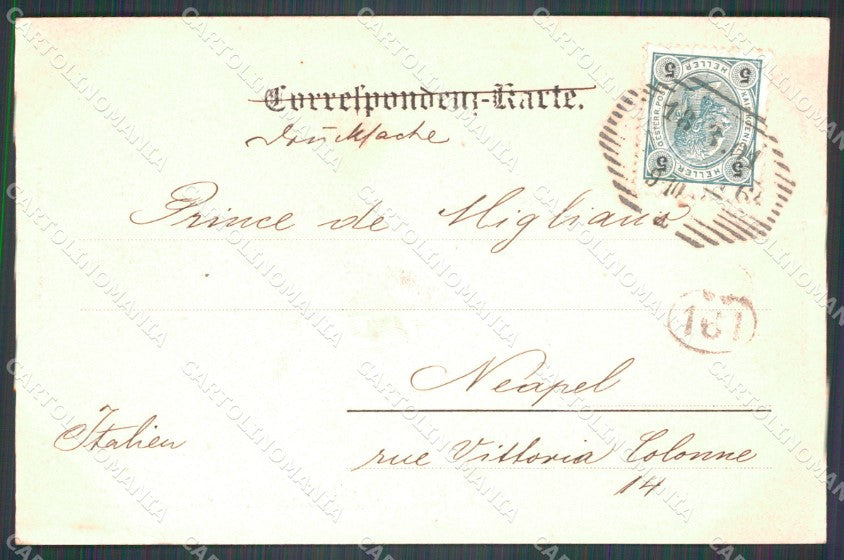 Correspondenz-Karte.
Drucksache
Prince de Migliano
Neapel
Italien
rue Vittoria Colonne
14
5 HELLER 5
5 HELLER 5
CARTOLINOMANIA